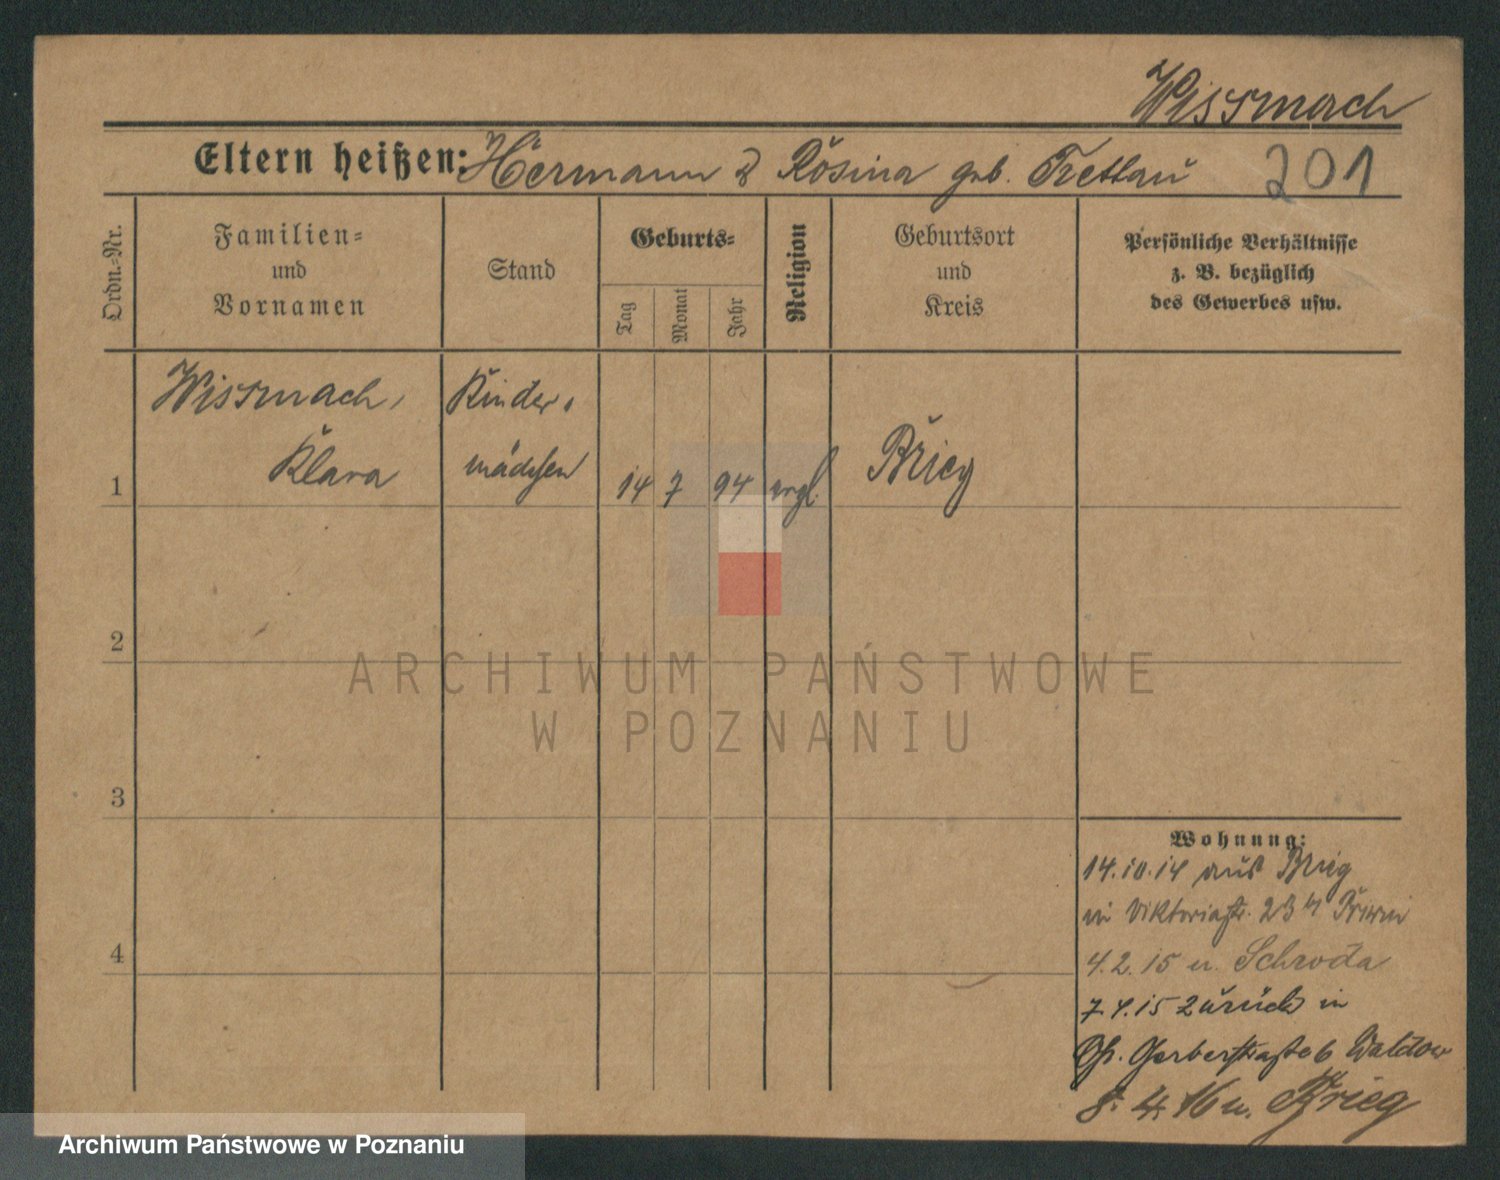 Wissmach
Eltern heißen: Hermann & Rosina geb. Trettau 201
Ordn.-Nr.
Familien-
und
Vornamen
Stand
Geburts-
Tag
Monat
Jahr
Religion
Geburtsort
und
Kreis
Persönliche Verhältnisse
z. B. bezüglich
des Gewerbes usw.
Wissmach, Kinder-
1 Klara mädchen 14 7 94 evgl. Brieg
2
3
4
Wohnung:
14.10.14 aus Brieg
in Viktoriastr. 23
4.2.15 n. Schroda
7.4.15 zurück in
Gr. Gerberstraße 6 Waldow
8. 4. 16 n. Brieg
ARCHIWUM PAŃSTWOWE
W POZNANIU
Archiwum Państwowe w Poznaniu